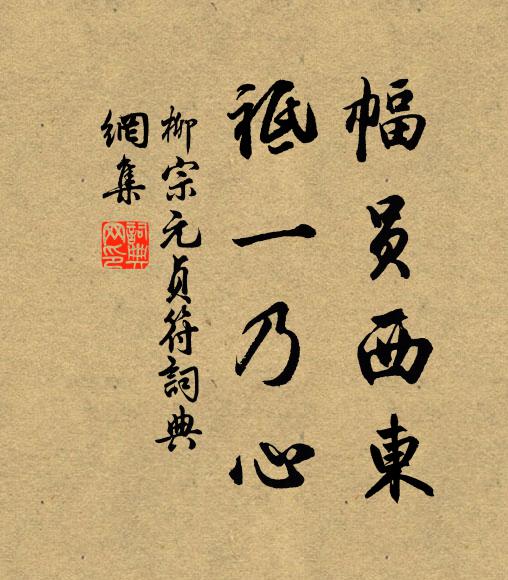 幅员西東
祗一乃心
柳宗元貞符詞典
網集
詞典
网印